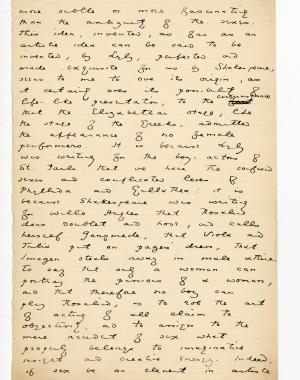 more subtle or more fascinating
than the ambiguity of the sexes.
This idea, invented, as far as an
artistic idea can be said to be
invented, by Lyly, perfected and
made exquisite for us by Shakespeare,
seems to me to owe its origin, as
it certainly owes its possibility of
life-like presentation, to the circumstance
that the Elizabethan stage, like
the stage of the Greeks, admitted
the appearance of no female
performers. It is because Lyly
was writing for the boy-actors of
St. Paul's that we have the confused
sexes and complicated loves of
Phyllida and Gallathea: it is
because Shakespeare was writing
for Willie Hughes that Rosalind
dons doublet and hose, and calls
herself Ganymede, that Viola and
Julia put on pages' dress, that
Imogen steals away in male attire.
To say that only a woman can
portray the passions of a woman,
and that therefore no boy can
play Rosalind, is to rob the art
of acting of all claim to
objectivity, and to assign to the
mere accident of sex what
properly belongs to imaginative
insight and creative energy. Indeed,
if sex be an element in artistic